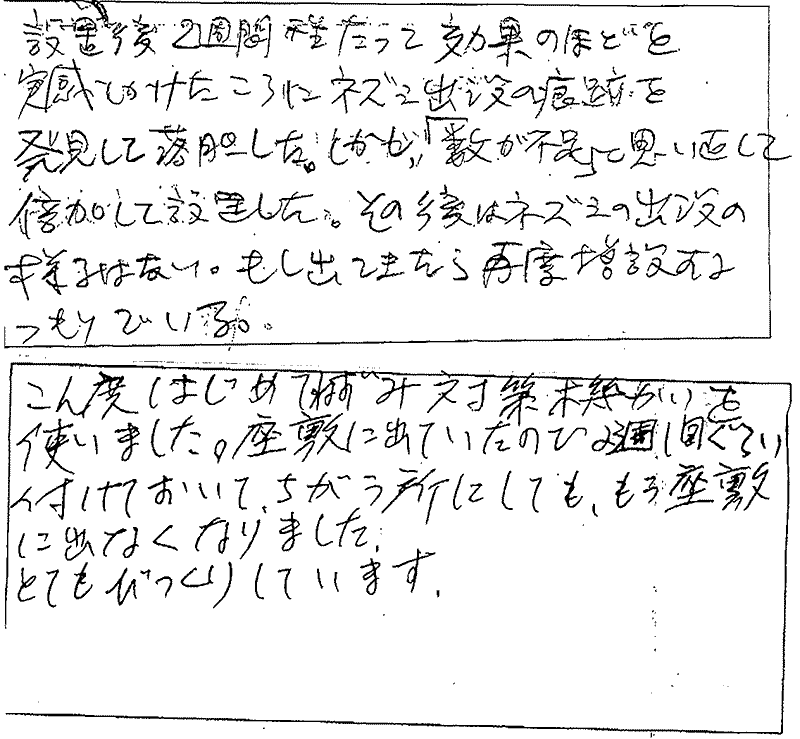 設置後2週間程たって効果のほどを
実感しかけたころにネズミ出没の痕跡を
発見して落胆した。しかし、「数が不足」と思い直して
倍加して設置した。その後はネズミの出没の
様子はない。もし出てきたら再度増設する
つもりでいる。
こん度はじめてねずみ対策を
使いました。座敷に出ていたので週1回ぐらい
付けておいて、ちがう所にしても、もう座敷
に出なくなりました。
とてもびっくりしています。